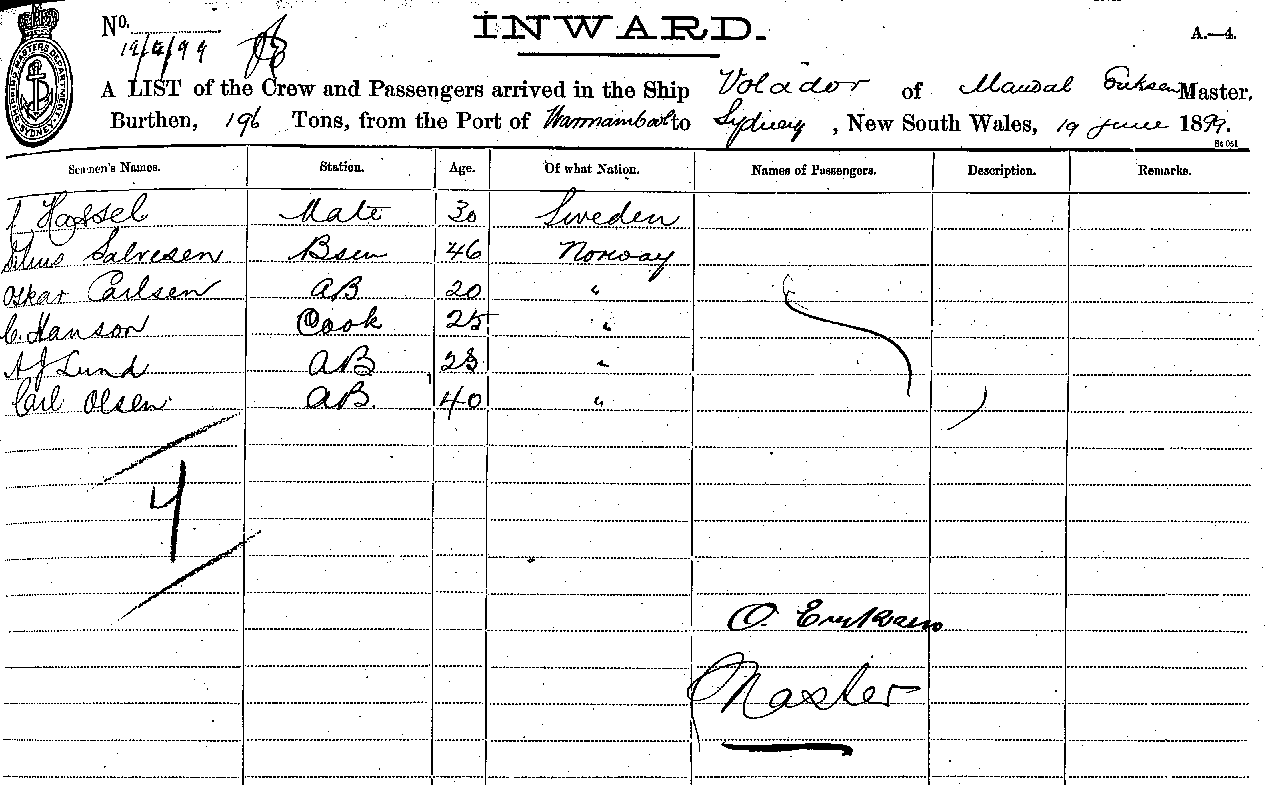 INWARD.
No.
19/6/99
A.—4.
SHIPPING MASTERS DEPARTMENT SYDNEY
A LIST of the Crew and Passengers arrived in the Ship Volador of Mandal Eriksen Master,
Burthen, 196 Tons, from the Port of Warrnambool to Sydney, New South Wales, 19 June 1899.
Seamen's Names. Station. Age. Of what Nation. Names of Passengers. Description. Remarks.
Mate 30 Sweden
Salvesen Bsen 46 Norway
Oskar Carlsen AB 20 "
C. Hanson Cook 25 "
AJ Lund AB 23 "
Carl Olsen AB. 40 "
4
O. Eriksen
Master